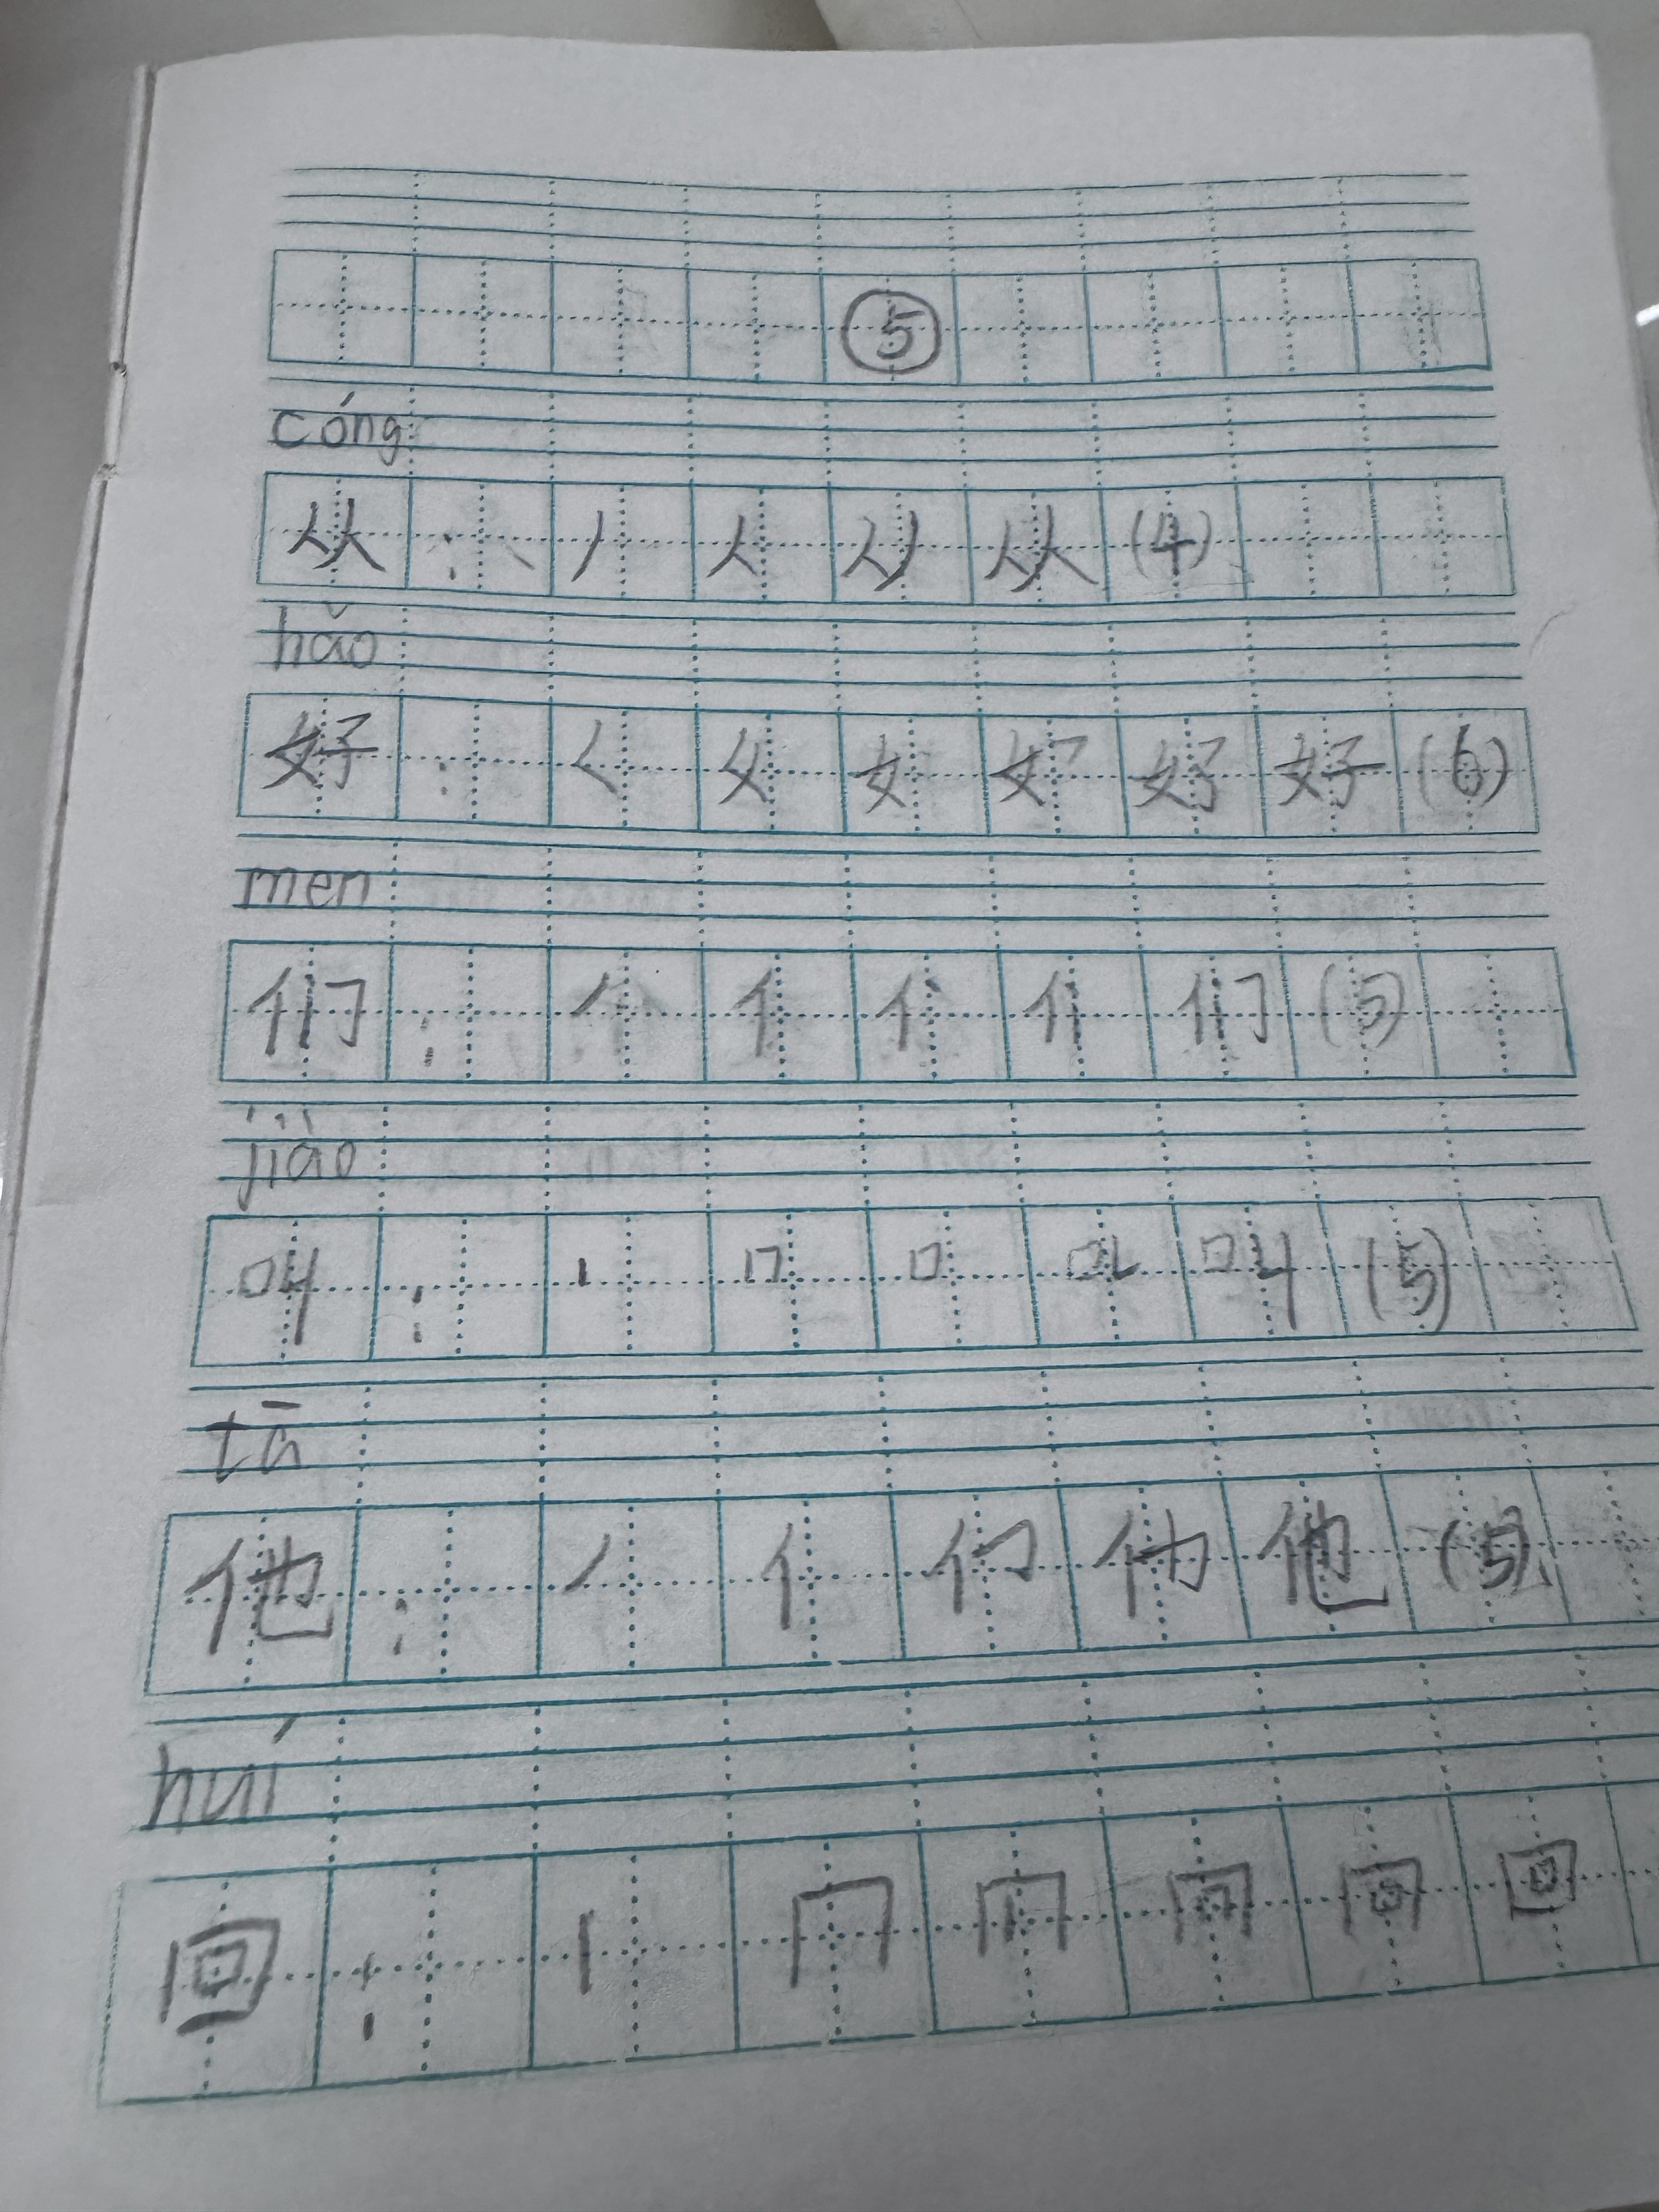 ⑤
cóng
从 : 丿 人 从 从 (4)
hǎo
好 : ㄑ 女 女 好 好 好 (6)
men
们 : 亻 亻 们 (5)
jiào
叫 : 丨 冂 口 叫 (5)
tā
他 : 丿 亻 他 (5)
huí
回 : 丨 冂 冂 回 回